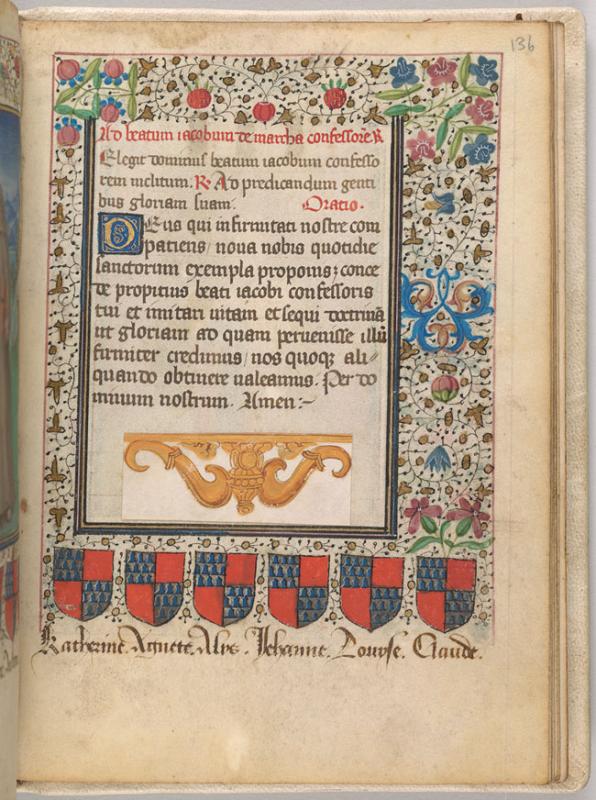 136
Ad beatum iacobum de marcha confessore. R
Elegit dominus beatum iacobum confesso
rem inclitum. R. Ad predicandum genti
bus gloriam suam. Oratio.
Deus qui infirmitati nostre com
patiens/ noua nobis quotidie
sanctorum exempla proponis; conce
de propitius beati iacobi confessoris
tui et imitari uitam et sequi doctrinā
ut gloriam ad quam peruenisse illū
firmiter credimus/ nos quoqꝫ ali〃
quando obtinere ualeamus. Per do
minum nostrum. Amen:~
Katherine. Agnete. Alys. Jehanne. Louyse. Claude.